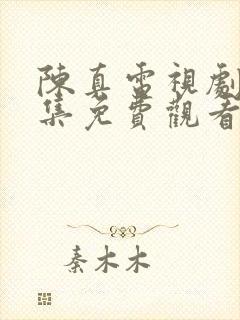 陳真電視劇
集免費觀看
秦木木